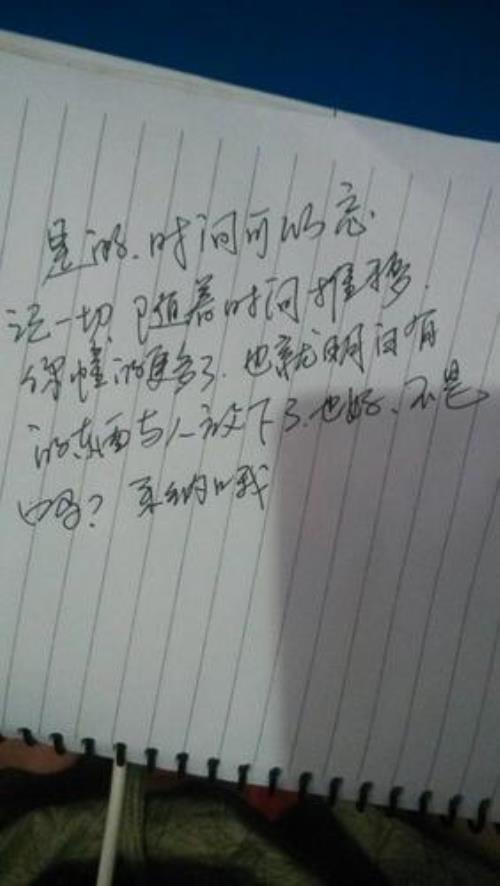 是的、时间可以忘
记一切、随着时间推移、
你懂的更多了、也就明白有
的东西与人放下了也好、不是
吗？采纳哦